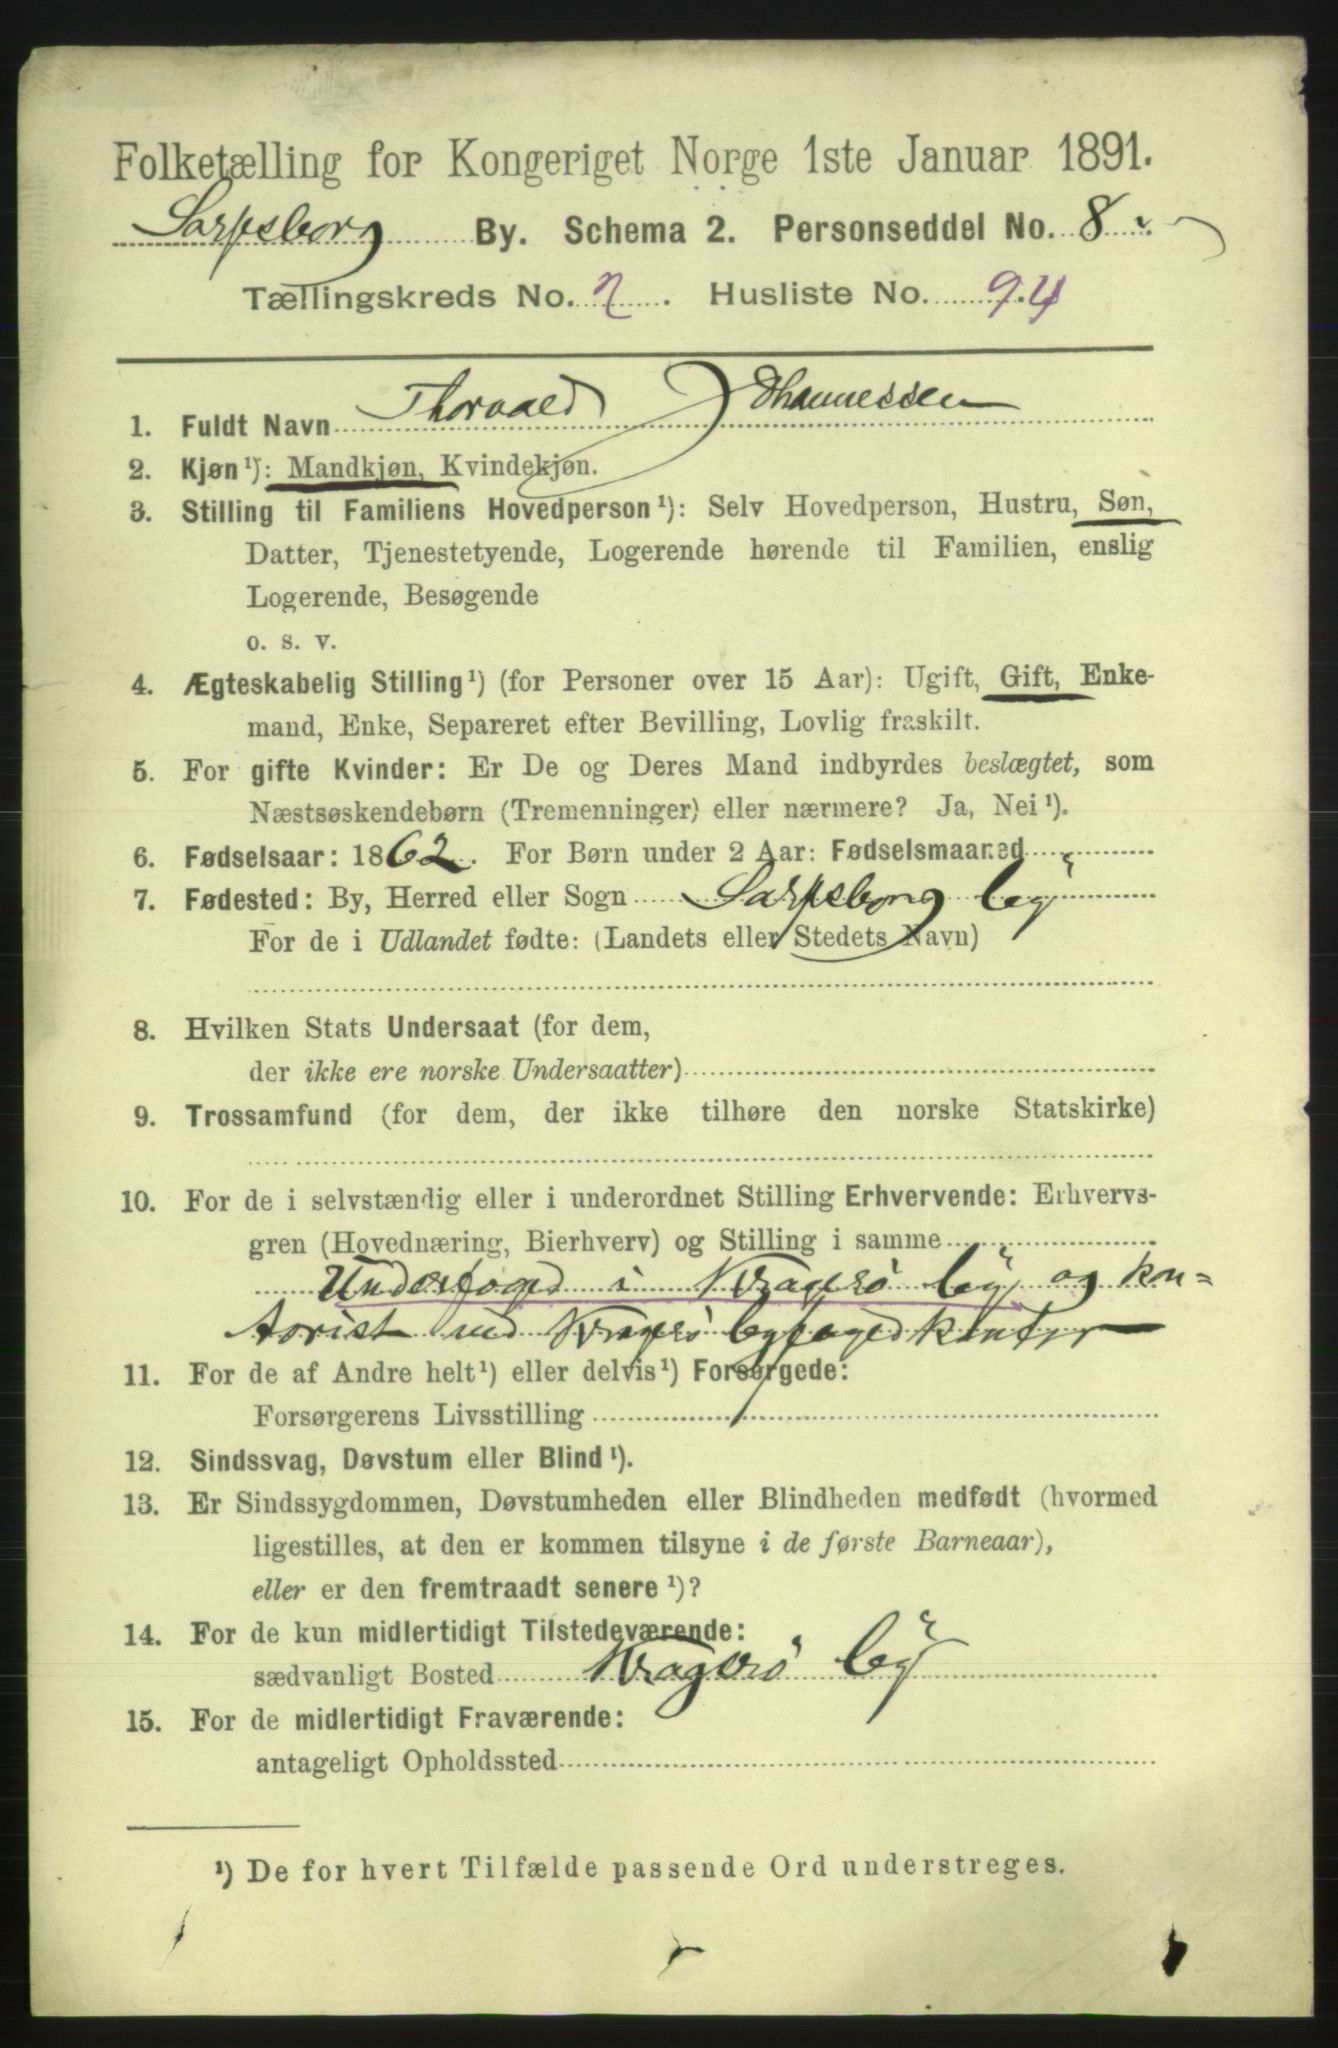 Folketælling for Kongeriget Norge 1ste Januar 1891.
Sarpsborg By. Schema 2. Personseddel No. 8
Tællingskreds No. 2. Husliste No. 94
1. Fuldt Navn Thorvald Johannessen
2. Kjøn¹): Mandkjøn, Kvindekjøn.
3. Stilling til Familiens Hovedperson¹): Selv Hovedperson, Hustru, Søn,
Datter, Tjenestetyende, Logerende hørende til Familien, enslig
Logerende, Besøgende
o. s. v.
4. Ægteskabelig Stilling¹) (for Personer over 15 Aar): Ugift, Gift, Enke-
mand, Enke, Separeret efter Bevilling, Lovlig fraskilt.
5. For gifte Kvinder: Er De og Deres Mand indbyrdes beslægtet, som
Næstsøskendebørn (Tremenninger) eller nærmere? Ja, Nei¹).
6. Fødselsaar: 1862. For Børn under 2 Aar: Fødselsmaaned
7. Fødested: By, Herred eller Sogn Sarpsborg by
For de i Udlandet fødte: (Landets eller Stedets Navn)
8. Hvilken Stats Undersaat (for dem,
der ikke ere norske Undersaatter)
9. Trossamfund (for dem, der ikke tilhøre den norske Statskirke)
10. For de i selvstændig eller i underordnet Stilling Erhvervende: Erhvervs-
gren (Hovednæring, Bierhverv) og Stilling i samme
Underfoged i Kragerø by og kon=
torist ved Kragerø byfogedkontor
11. For de af Andre helt¹) eller delvis¹) Forsørgede:
Forsørgerens Livsstilling
12. Sindssvag, Døvstum eller Blind¹).
13. Er Sindssygdommen, Døvstumheden eller Blindheden medfødt (hvormed
ligestilles, at den er kommen tilsyne i de første Barneaar),
eller er den fremtraadt senere¹)?
14. For de kun midlertidigt Tilstedeværende:
sædvanligt Bosted Kragerø by
15. For de midlertidigt Fraværende:
antageligt Opholdssted
¹) De for hvert Tilfælde passende Ord understreges.